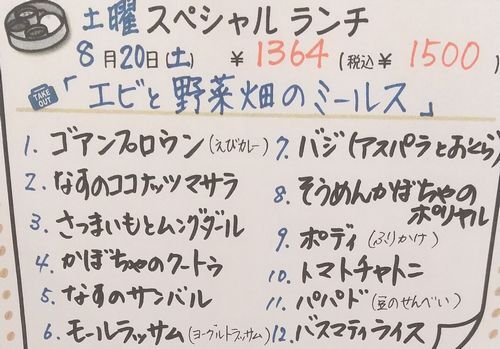 土曜スペシャルランチ
8月20日(土) ¥1364(税込¥1500)
TAKE OUT
「エビと野菜畑のミールス」
1. ゴアンプロウン(えびカレー)
2. なすのココナッツマサラ
3. さつまいもとムングダール
4. かぼちゃのクートゥ
5. なすのサンバル
6. モールラッサム(ヨーグルトラッサム)
7. バジ(アスパラとおくら)
8. そうめんかぼちゃのポリヤル
9. ポディ(ふりかけ)
10. トマトチャトニ
11. パパド(豆のせんべい)
12. バスマティライス